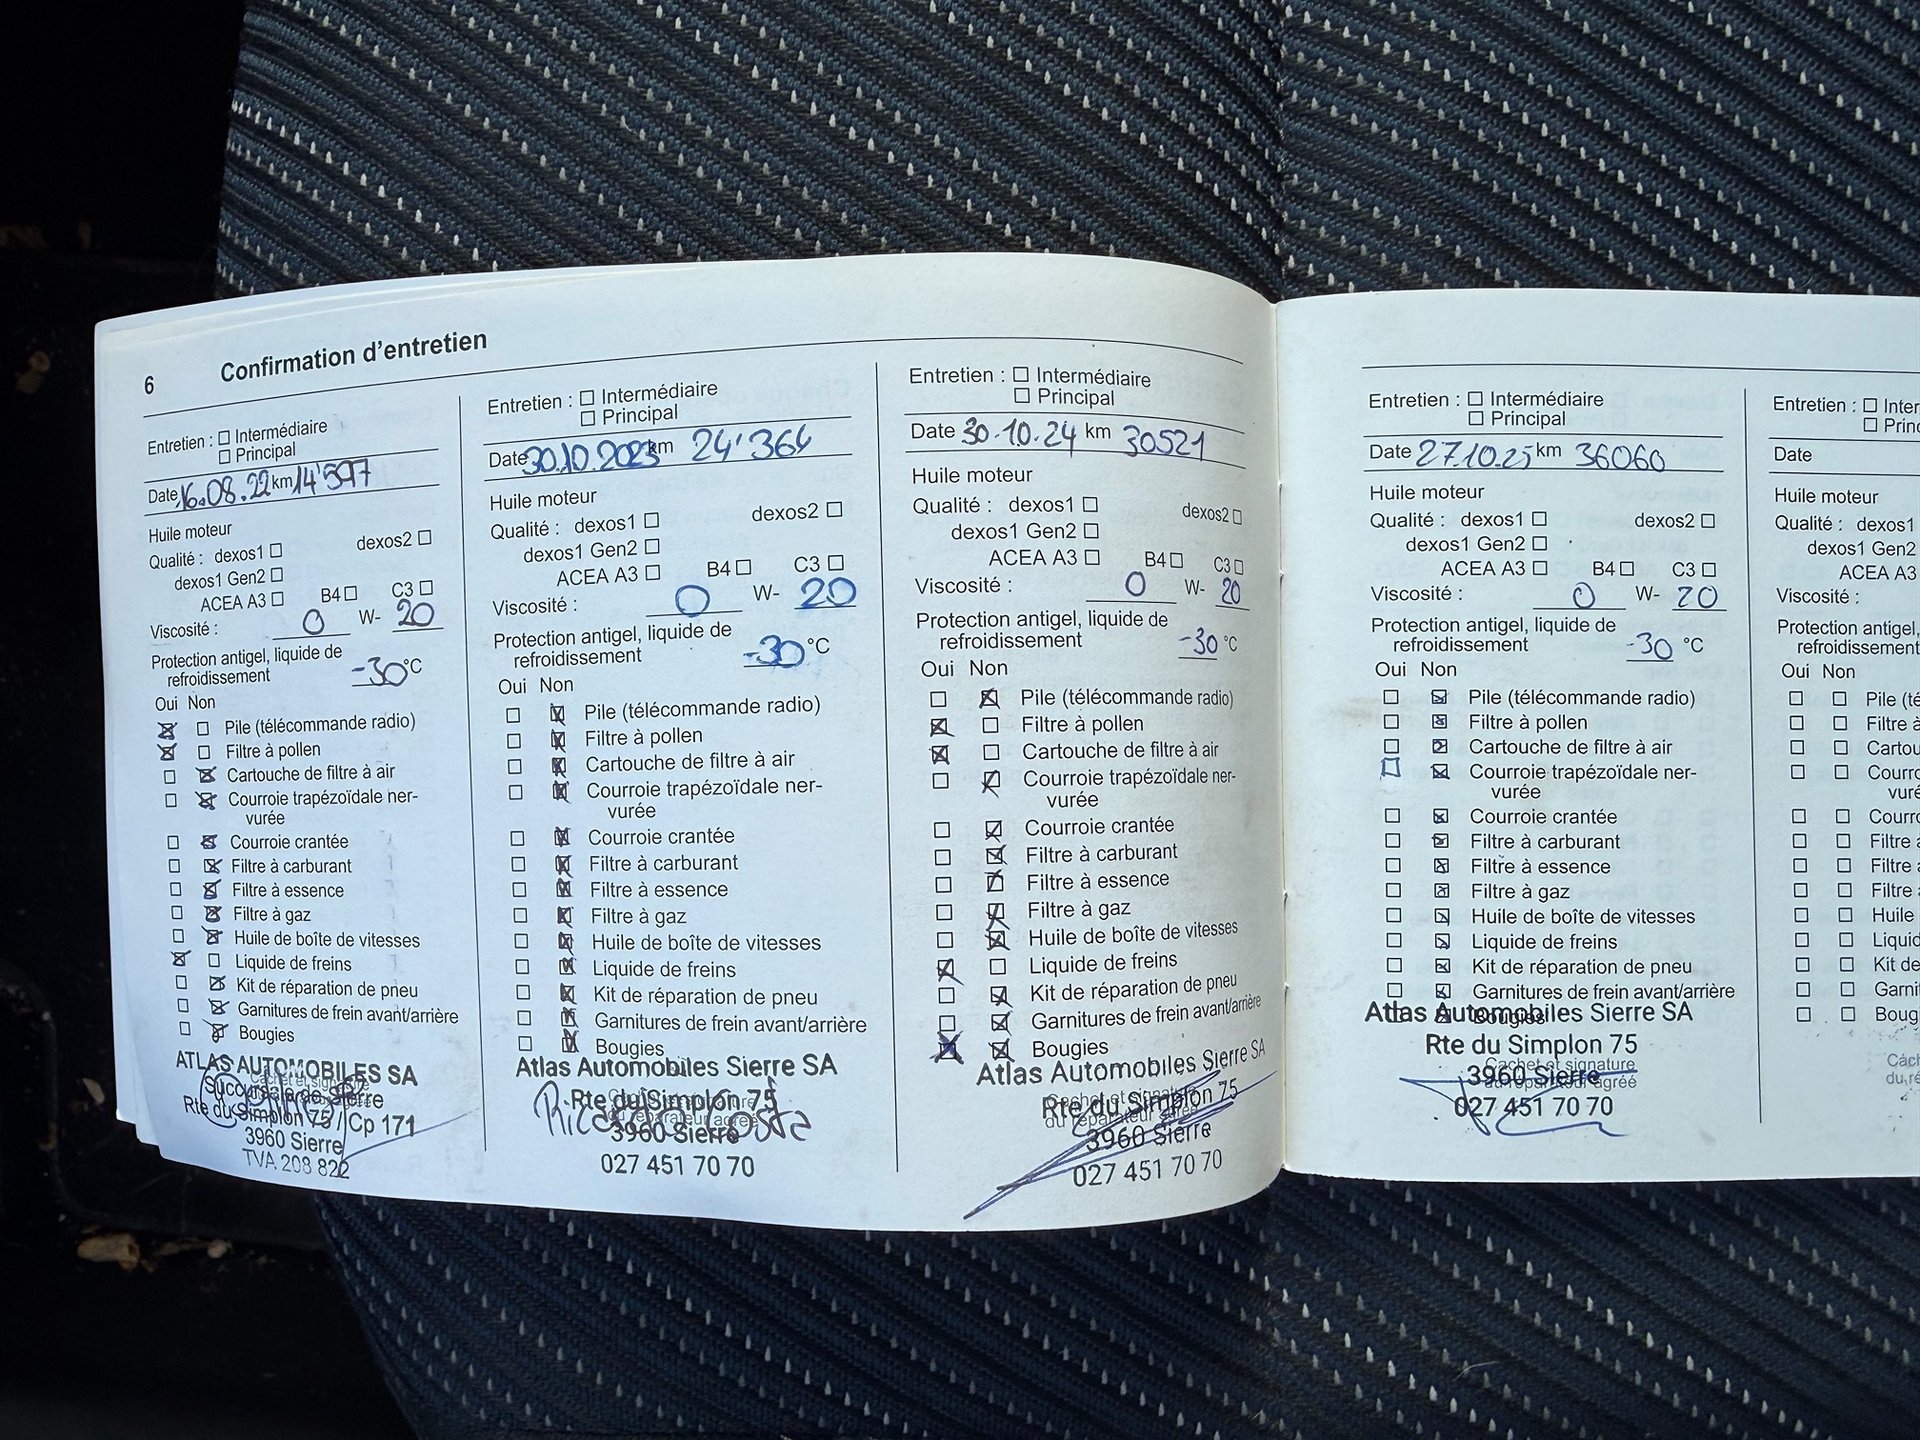 6 Confirmation d'entretien
Entretien : ☐ Intermédiaire
☐ Principal
Date 16.08.22 km 14'597
Huile moteur
Qualité : dexos1 ☐ dexos2 ☐
dexos1 Gen2 ☐
ACEA A3 ☐ B4 ☐ C3 ☐
Viscosité : 0 W- 20
Protection antigel, liquide de
refroidissement -30 °C
Oui Non
☒ ☐ Pile (télécommande radio)
☒ ☐ Filtre à pollen
☐ ☒ Cartouche de filtre à air
☐ ☒ Courroie trapézoïdale ner-
vurée
☐ ☒ Courroie crantée
☐ ☒ Filtre à carburant
☐ ☒ Filtre à essence
☐ ☒ Filtre à gaz
☐ ☒ Huile de boîte de vitesses
☒ ☐ Liquide de freins
☐ ☒ Kit de réparation de pneu
☐ ☒ Garnitures de frein avant/arrière
☐ ☒ Bougies
ATLAS AUTOMOBILES SA
Succursale de Sierre
Rte du Simplon 75 / Cp 171
3960 Sierre
TVA 208 822
Entretien : ☐ Intermédiaire
☐ Principal
Date 30.10.2023 km 24'364
Huile moteur
Qualité : dexos1 ☐ dexos2 ☐
dexos1 Gen2 ☐
ACEA A3 ☐ B4 ☐ C3 ☐
Viscosité : 0 W- 20
Protection antigel, liquide de
refroidissement -30 °C
Oui Non
☐ ☒ Pile (télécommande radio)
☐ ☒ Filtre à pollen
☐ ☒ Cartouche de filtre à air
☐ ☒ Courroie trapézoïdale ner-
vurée
☐ ☒ Courroie crantée
☐ ☒ Filtre à carburant
☐ ☒ Filtre à essence
☐ ☒ Filtre à gaz
☐ ☒ Huile de boîte de vitesses
☐ ☒ Liquide de freins
☐ ☒ Kit de réparation de pneu
☐ ☒ Garnitures de frein avant/arrière
☐ ☒ Bougies
Atlas Automobiles Sierre SA
Cachet et signature
Rte du Simplon 75
du réparateur agréé
3960 Sierre
027 451 70 70
Entretien : ☐ Intermédiaire
☐ Principal
Date 30.10.24 km 30521
Huile moteur
Qualité : dexos1 ☐ dexos2 ☐
dexos1 Gen2 ☐
ACEA A3 ☐ B4 ☐ C3 ☐
Viscosité : 0 W- 20
Protection antigel, liquide de
refroidissement -30 °C
Oui Non
☐ ☒ Pile (télécommande radio)
☒ ☐ Filtre à pollen
☒ ☐ Cartouche de filtre à air
☐ ☒ Courroie trapézoïdale ner-
vurée
☐ ☒ Courroie crantée
☐ ☒ Filtre à carburant
☐ ☒ Filtre à essence
☐ ☒ Filtre à gaz
☐ ☒ Huile de boîte de vitesses
☒ ☐ Liquide de freins
☐ ☒ Kit de réparation de pneu
☐ ☒ Garnitures de frein avant/arrière
☒ ☒ Bougies
Atlas Automobiles Sierre SA
Cachet et signature
Rte du Simplon 75
du réparateur agréé
3960 Sierre
027 451 70 70
Entretien : ☐ Intermédiaire
☐ Principal
Date 27.10.25 km 36060
Huile moteur
Qualité : dexos1 ☐ dexos2 ☐
dexos1 Gen2 ☐
ACEA A3 ☐ B4 ☐ C3 ☐
Viscosité : 0 W- 20
Protection antigel, liquide de
refroidissement -30 °C
Oui Non
☐ ☒ Pile (télécommande radio)
☐ ☒ Filtre à pollen
☐ ☒ Cartouche de filtre à air
☐ ☒ Courroie trapézoïdale ner-
vurée
☐ ☒ Courroie crantée
☐ ☒ Filtre à carburant
☐ ☒ Filtre à essence
☐ ☒ Filtre à gaz
☐ ☒ Huile de boîte de vitesses
☐ ☒ Liquide de freins
☐ ☒ Kit de réparation de pneu
☐ ☒ Garnitures de frein avant/arrière
☐ ☒ Bougies
Atlas Automobiles Sierre SA
Rte du Simplon 75
Cachet et signature
3960 Sierre
du réparateur agréé
027 451 70 70
Entretien : ☐ Inter
☐ Princ
Date
Huile moteur
Qualité : dexos1
dexos1 Gen2
ACEA A3
Viscosité :
Protection antigel,
refroidissement
Oui Non
☐ ☐ Pile (té
☐ ☐ Filtre à
☐ ☐ Cartou
☐ ☐ Courro
vuré
☐ ☐ Courro
☐ ☐ Filtre
☐ ☐ Filtre
☐ ☐ Filtre
☐ ☐ Huile
☐ ☐ Liquid
☐ ☐ Kit de
☐ ☐ Garni
☐ ☐ Boug
Cach
du ré